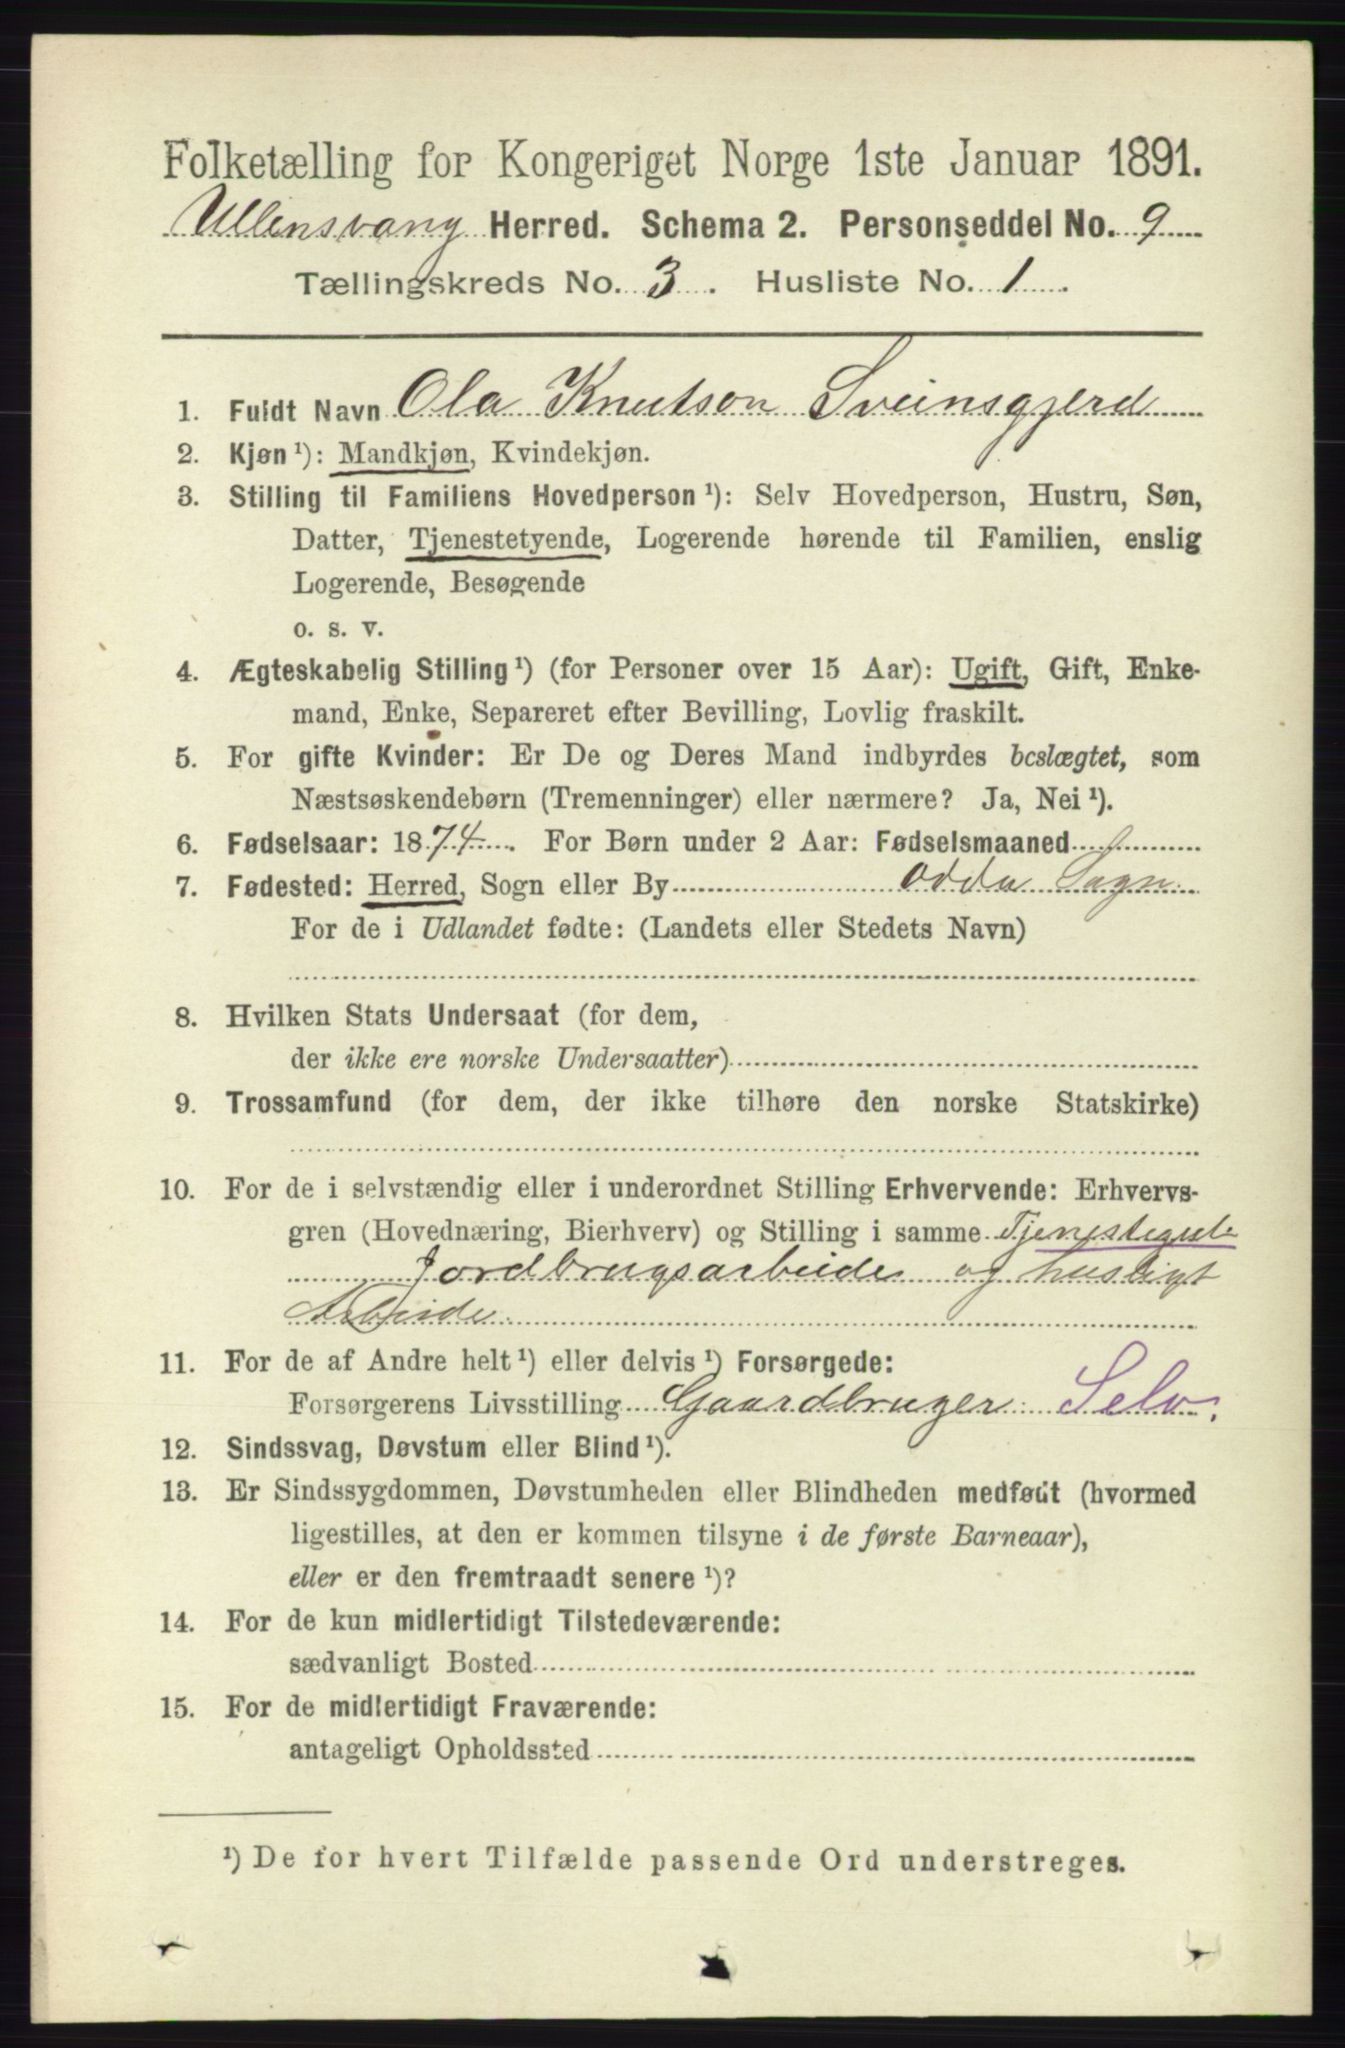 Folketælling for Kongeriget Norge 1ste Januar 1891.
Ullensvang Herred. Schema 2. Personseddel No. 9
Tællingskreds No. 3. Husliste No. 1
1. Fuldt Navn Ola Knutson Sveinsgjerd
2. Kjøn¹): Mandkjøn, Kvindekjøn.
3. Stilling til Familiens Hovedperson¹): Selv Hovedperson, Hustru, Søn,
Datter, Tjenestetyende, Logerende hørende til Familien, enslig
Logerende, Besøgende
o. s. v.
4. Ægteskabelig Stilling¹) (for Personer over 15 Aar): Ugift, Gift, Enke-
mand, Enke, Separeret efter Bevilling, Lovlig fraskilt.
5. For gifte Kvinder: Er De og Deres Mand indbyrdes beslægtet, som
Næstsøskendebørn (Tremenninger) eller nærmere? Ja, Nei¹).
6. Fødselsaar: 1874. For Børn under 2 Aar: Fødselsmaaned
7. Fødested: Herred, Sogn eller By Odda Sogn
For de i Udlandet fødte: (Landets eller Stedets Navn)
8. Hvilken Stats Undersaat (for dem,
der ikke ere norske Undersaatter)
9. Trossamfund (for dem, der ikke tilhøre den norske Statskirke)
10. For de i selvstændig eller i underordnet Stilling Erhvervende: Erhvervs-
gren (Hovednæring, Bierhverv) og Stilling i samme Tjenestegut
Jordbrugsarbeide og husligt
Arbeide.
11. For de af Andre helt¹) eller delvis¹) Forsørgede:
Forsørgerens Livsstilling Gaardbruger. Selv.
12. Sindssvag, Døvstum eller Blind¹).
13. Er Sindssygdommen, Døvstumheden eller Blindheden medfødt (hvormed
ligestilles, at den er kommen tilsyne i de første Barneaar),
eller er den fremtraadt senere¹)?
14. For de kun midlertidigt Tilstedeværende:
sædvanligt Bosted
15. For de midlertidigt Fraværende:
antageligt Opholdssted
¹) De for hvert Tilfælde passende Ord understreges.